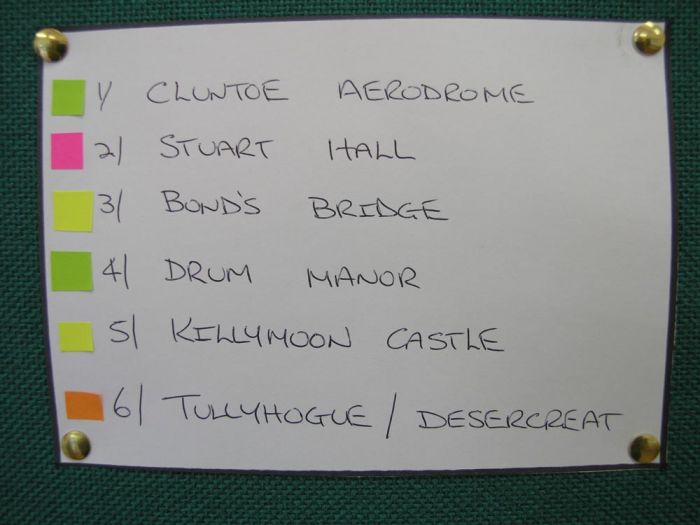 1/ CLUNTOE AERODROME
2/ STUART HALL
3/ BOND'S BRIDGE
4/ DRUM MANOR
5/ KILLYMOON CASTLE
6/ TULLYHOGUE / DESERCREAT